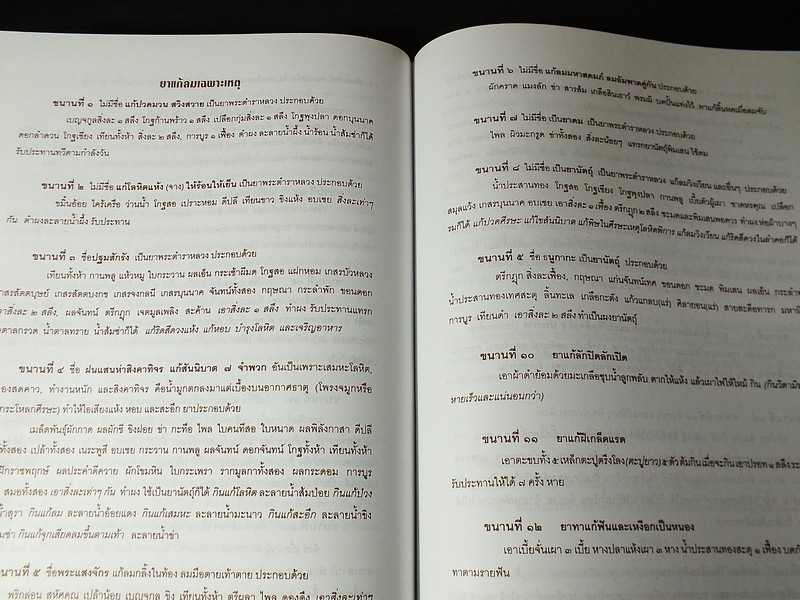 ยาแก้ลมเฉพาะเหตุ
ขนานที่ ๑ ไม่มีชื่อ แก้ปวดมวน สวิงสวาย เป็นยาพระตำราหลวง ประกอบด้วย
เบญจกูลสิ่งละ ๑ สลึง โกฐก้านพร้าว ๑ สลึง เปลือกกุ่มสิ่งละ ๑ สลึง โกฐพุงปลา ดอกบุนนาค
ดอกลำดวน โกฐเขียง เทียนทั้งห้า สิ่งละ ๒ สลึง, การบูร ๑ เฟื้อง ตำผง ละลายน้ำผึ้ง น้ำร้อน น้ำส้มซ่าก็ได้
รับประทานทวีตามกำลังวัน
ขนานที่ ๒ ไม่มีชื่อ แก้โลหิตแห้ง (จาง) ให้ร้อนให้เย็น เป็นยาพระตำราหลวง ประกอบด้วย
ขมิ้นอ้อย ไคร้เครือ ว่านน้ำ โกฐสอ เปราะหอม ดีปลี เทียนขาว ขิงแห้ง อบเชย สิ่งละเท่าๆ
กัน ตำผงละลายน้ำผึ้ง รับประทาน
ขนานที่ ๓ ชื่อปฐมสักรัง เป็นยาพระตำราหลวง ประกอบด้วย
เทียนทั้งห้า กานพลู แห้วหมู ใบกระวาน ผลเอ็น กระเช้าผีมด โกฐสอ แฝกหอม เกสรบัวหลวง
เกสรสัตตบุษย์ เกสรสัตตบงกช เกสรจงกลนี เกสรบุนนาค จันทน์ทั้งสอง กฤษณา กระลำพัก ขอนดอก
เอาสิ่งละ ๒ สลึง, ผลจันทน์ ตรีกฏุก เจตมูลเพลิง สะค้าน เอาสิ่งละ ๑ สลึง ทำผง รับประทานแทรก
น้ำตาลกรวด น้ำตาลทราย น้ำส้มซ่าก็ได้ แก้ริดสีดวงแห้ง แก้หอบ บำรุงโลหิต และเจริญอาหาร
ขนานที่ ๔ ชื่อ ฝนแสนห่าสิงคาทิจร แก้สันนิบาต ๗ จำพวก อันเป็นเพราะเสมหะโลหิต,
สองสดคาว, ทำงานหนัก และสิงคาทิจร คือน้ำมูกตกลงมาแต่เบื้องบนอากาศธาตุ (โพรงจมูกหรือ
กระโหลกศีรษะ) ทำให้ไอเสียงแห้ง หอบ และสะอึก ยาประกอบด้วย
เมล็ดพันธุ์ผักกาด ผลผักชี ขิงฝอย ข่า กะทือ ไพล ใบคนทีสอ ใบหนาด ผลพิลังกาสา ดีปลี
ทั้งสอง เปล้าทั้งสอง เนระพูสี อบเชย กระวาน กานพลู ผลจันทน์ ดอกจันทน์ โกฐทั้งห้า เทียนทั้งห้า
ฝักราชพฤกษ์ ผลประคำดีควาย ผักโขมหิน ใบกระเพรา รากมูลกาทั้งสอง ผลกระดอม การบูร
สมอทั้งสอง เอาสิ่งละเท่าๆ กัน ทำผง ใช้เป็นยานัตถุ์ก็ได้ กินแก้โลหิต ละลายน้ำส้มป่อย กินแก้ปวง
น้ำสุรา กินแก้ลม ละลายน้ำอ้อยแดง กินแก้เสมหะ ละลายน้ำมะนาว กินแก้สะอึก ละลายน้ำขิง
กินแก้จุกเสียดลมขึ้นตามเท้า ละลายน้ำข่า
ขนานที่ ๕ ชื่อพระแสงจักร แก้ลมกลิ้งในท้อง ลมมือตายเท้าตาย ประกอบด้วย
พริกล่อน สหัศคุณ เปล้าน้อย เบญจกูล ขิง เทียนทั้งห้า ตรีผลา ไพล ดองดึง เอาสิ่งละเท่าๆ
ขนานที่ ๖ ไม่มีชื่อ แก้ลมมหาสดมภ์ ลมอัมพาตคู่กัน ประกอบด้วย
ผักคราด แมงลัก ข่า สารส้ม เกลือสินเธาว์ พรมมิ บดปั้นแท่งไว้ ทาแก้ลิ้นหดเมื่อลมจับ
ขนานที่ ๗ ไม่มีชื่อ เป็นยาดม เป็นยาพระตำราหลวง ประกอบด้วย
ไพล ผิวมะกรูด ข่าทั้งสอง สิ่งละน้อยๆ แทรกยานัตถุ์พิมเสน ใช้ดม
ขนานที่ ๘ ไม่มีชื่อ เป็นยานัตถุ์ เป็นยาพระตำราหลวง แก้ลมวิงเวียน และอื่นๆ ประกอบด้วย
น้ำประสานทอง โกฐสอ โกฐเขียง โกฐพุงปลา กานพลู เบี้ยตัวผู้เผา ชาดหรคุณ เปลือก
สมุลแว้ง เกสรบุนนาค อบเชย เอาสิ่งละ ๑ เฟื้อง ตรีกฏุก ๒ สลึง ชะมดและพิมเสนพอควร ทำผงห่อผ้าบางๆ
ดมก็ได้ แก้ปวดศีรษะ แก้ไข้สันนิบาต แก้พิษในศีรษะเหตุโลหิตพิการ แก้ลมวิงเวียน แก้ริดสีดวงในลำคอก็ได้
ขนานที่ ๙ ชื่อ ธนูกากะ เป็นยานัตถุ์ ประกอบด้วย
ตรีกฏุก สิ่งละเฟื้อง, กฤษณา แก่นจันทน์เทศ ขอนดอก ชะมด พิมเสน ผลเอ็น กระลำพัก
น้ำประสานทองเทศสะตุ ลิ้นทะเล เกลือกะตัง แก้วแกลบ(แร่) ศิลายอน(แร่) สายสะดือทารก มหาหิ
การบูร เทียนดำ เอาสิ่งละ ๒ สลึง ทำเป็นผงยานัตถุ์
ขนานที่ ๑๐ ยาแก้ลักปิดลักเปิด
เอาผ้าดำย้อมด้วยมะเกลือชุบน้ำลูกพลับ ตากให้แห้ง แล้วเผาไฟให้ไหม้ กิน (กินวิตามิน
หายเร็วและแน่นอนกว่า)
ขนานที่ ๑๑ ยาแก้ฝีเกล็ดแรด
เอาตะขบทั้ง ๕ เหล็กตะปูตรึงโลง(ตะปูยาว) ๕ ตัว ต้มกินเมื่อจะกินเอาปรอท ๑ สลึง
รับประทานให้ได้ ๗ ครั้ง หาย
ขนานที่ ๑๒ ยาทาแก้ฟันและเหงือกเป็นหนอง
เอาเบี้ยจั่นเผา ๓ เบี้ย หางปลาแห้งเผา ๓ หาง น้ำประสานทองสะตุ ๑ เฟื้อง
ทาตามรายฟัน